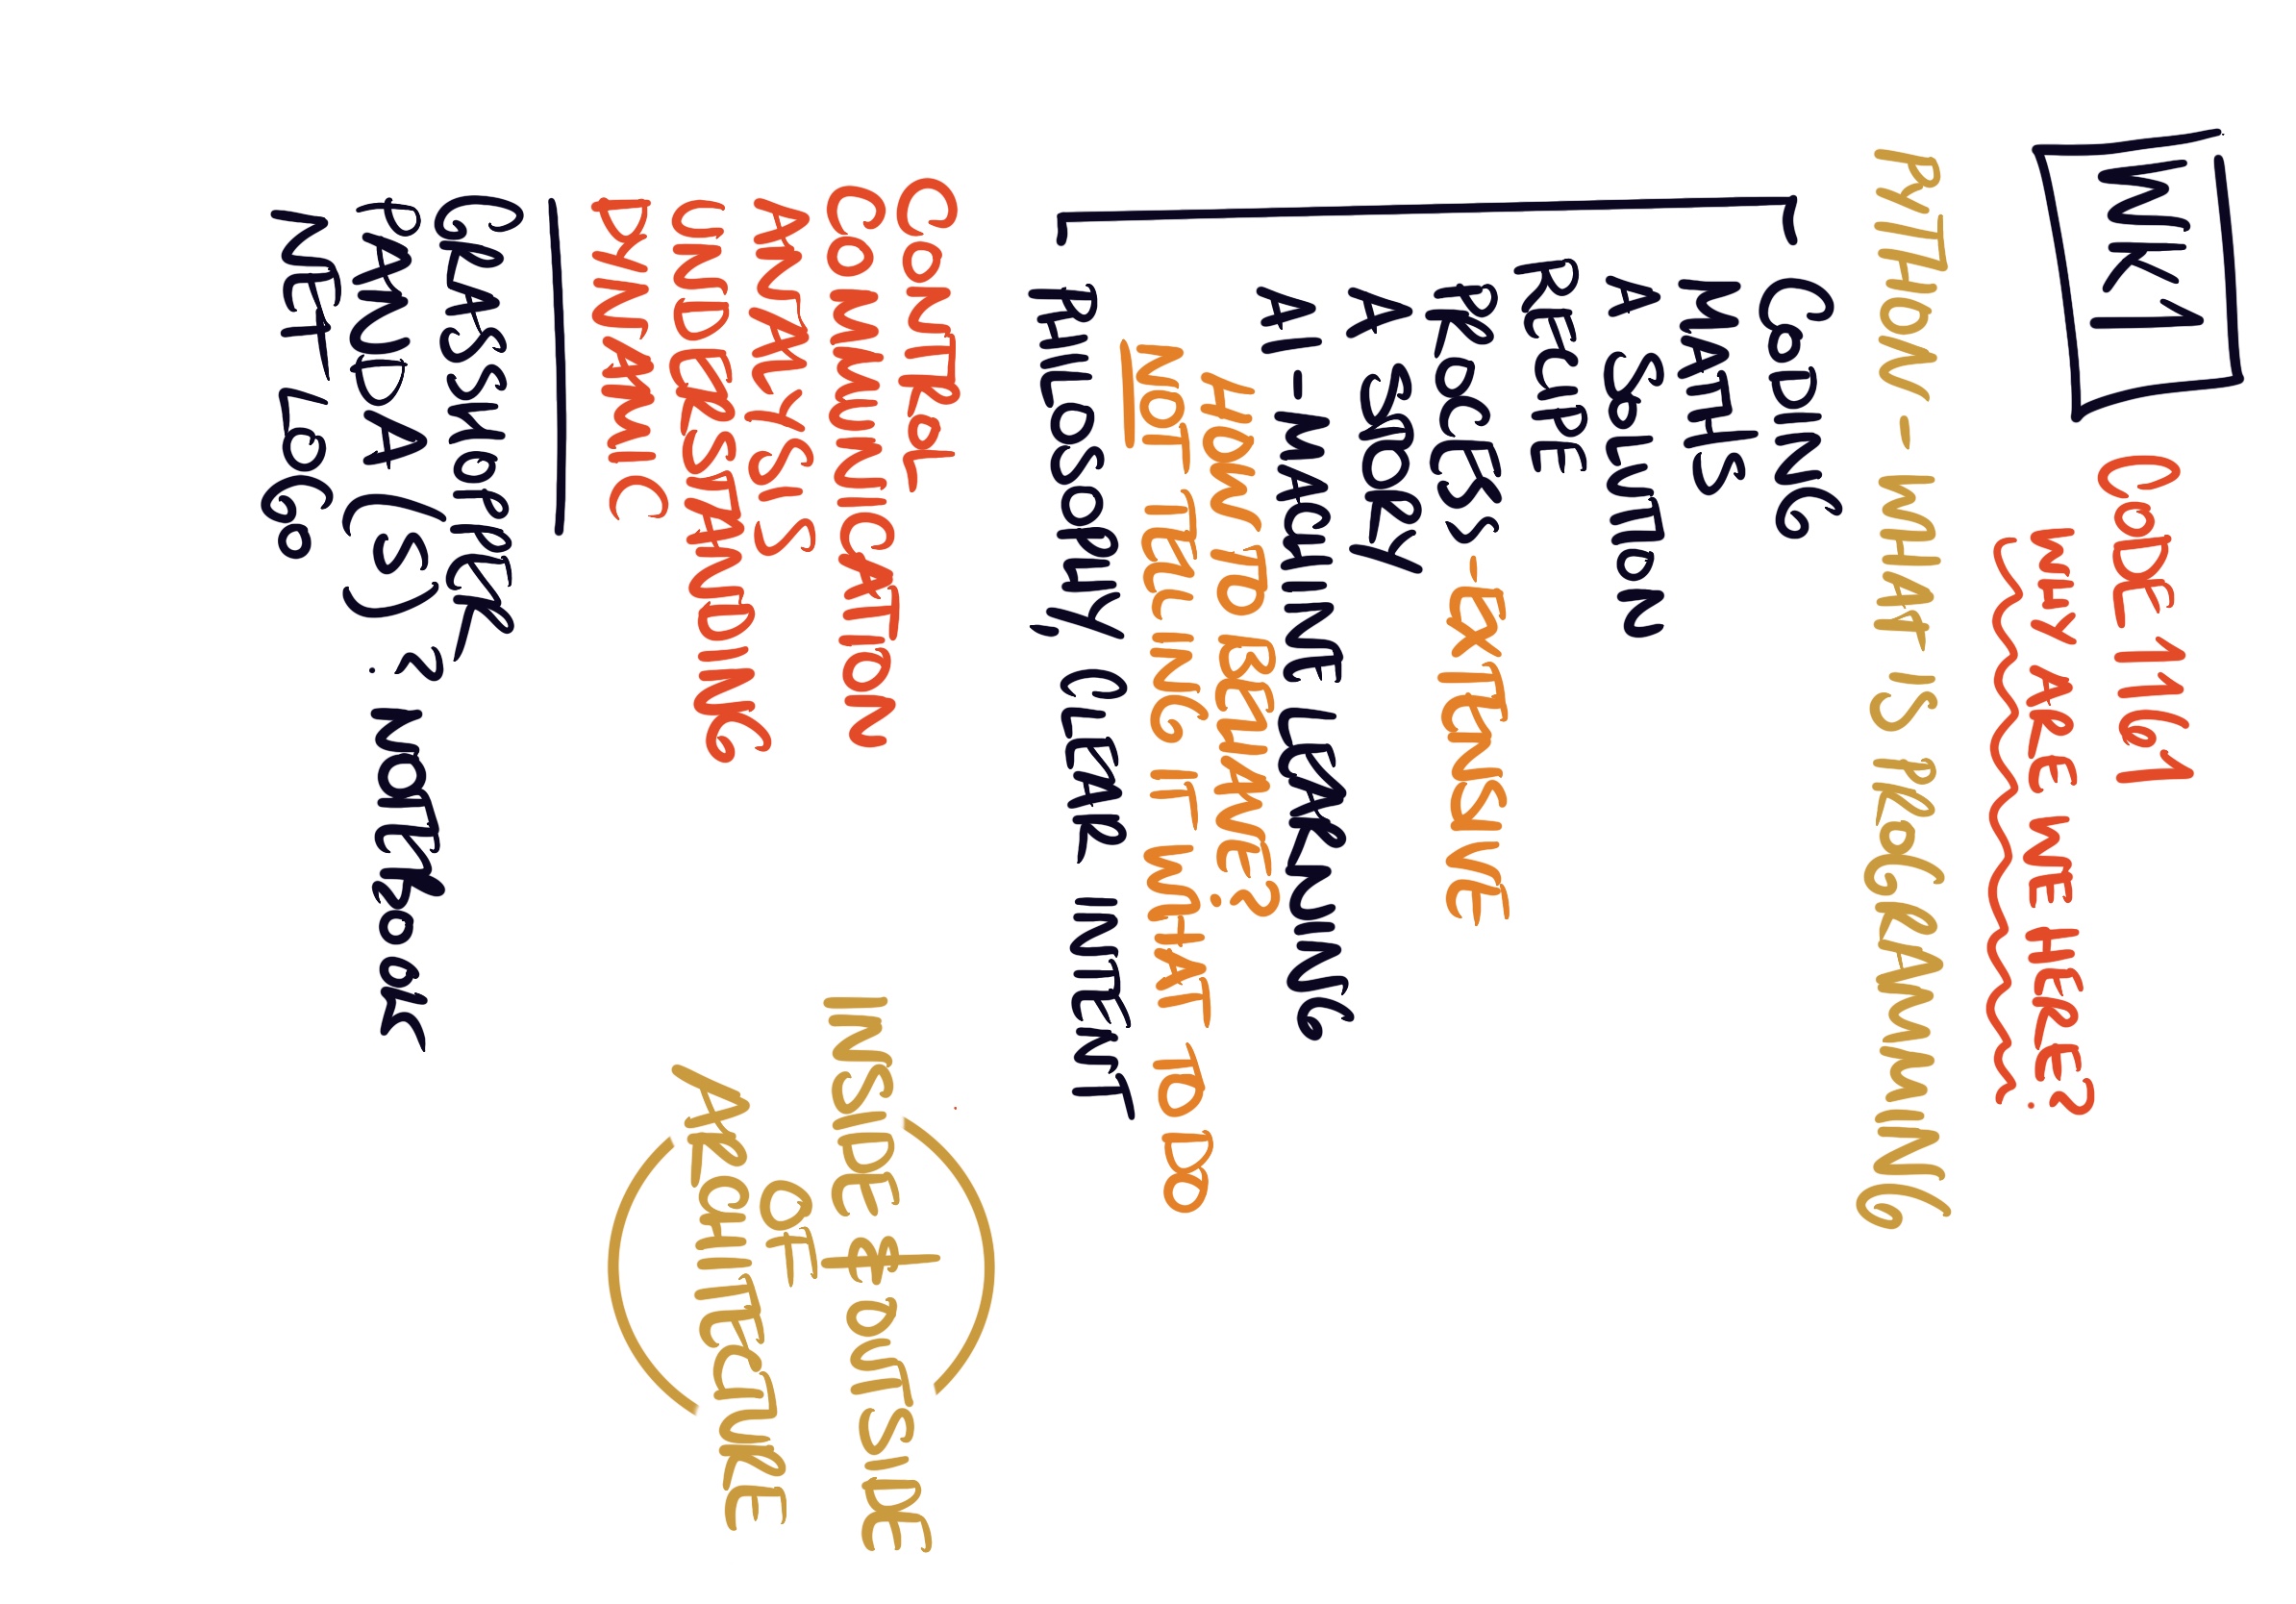 WK1
CODE1161
WHY ARE WE HERE?
PYTHON - WHAT IS PROGRAMMING
CODING
MATHS
A SOLUTION
RECIPE
PROCESS - EXTENSIVE
A STORY
AI - MACHINE LEARNING
HOW TO BEHAVE?
NOT TELLING IT WHAT TO DO
PHILOSOPHY, CLEAR INTENT
CONTROL
COMMUNICATION
ANALYSIS
UNDERSTANDING
DYNAMIC
INSIDE & OUTSIDE
OF
ARCHITECTURE
GRASSHOPPER
PANDA(S)? NOTEBOOK
NETLOGO